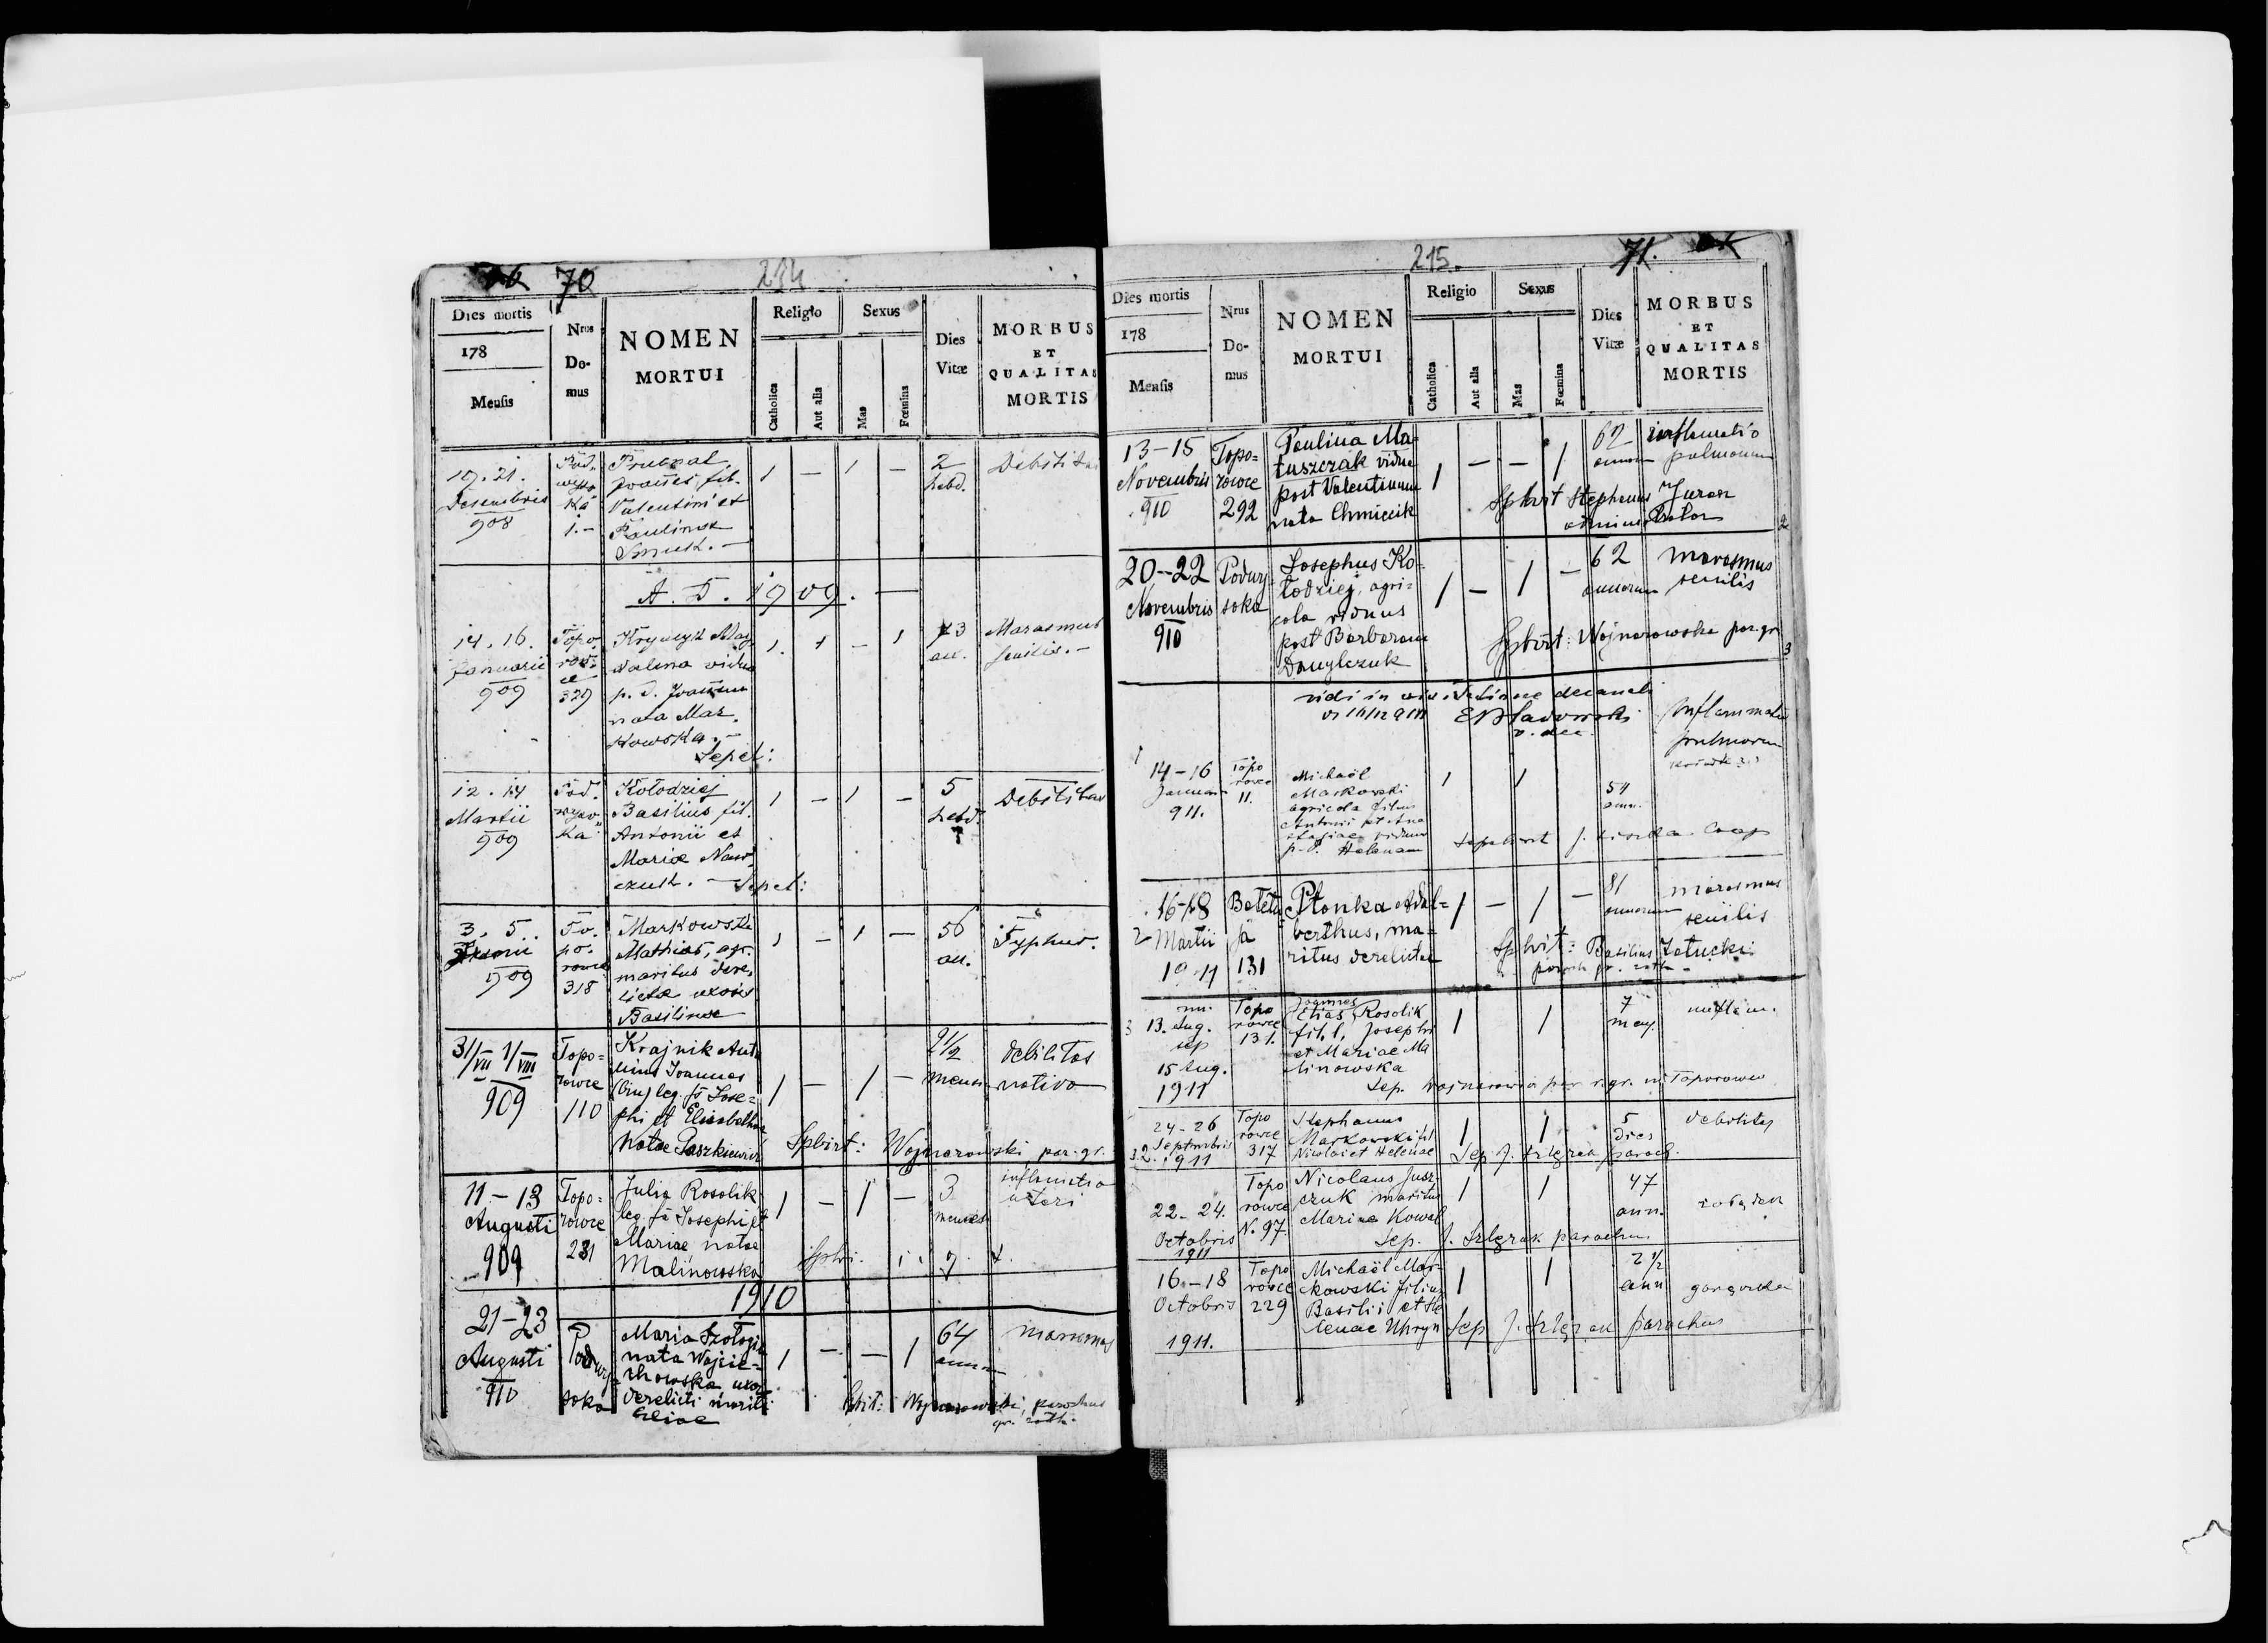 70
214
Dies mortis
178
Mensis
Nrus
Do-
mus
NOMEN
MORTUI
Religio
Catholica
Aut alia
Sexus
Mas
Fœmina
Dies
Vitæ
MORBUS
ET
QUALITAS
MORTIS
19. 21.
Decembris
908
Pod.
wyso
ka
1.-
Joannes, fil.
Valentini et
Paulinae
Smuk. -
1 - 1 -
2
hebd.
Debilitas
A. D. 1909. -
14. 16.
Januarii
909
Topo
row-
ce
329
Mag
dalena vidua
p. d. Joannem
nata Mar.
kowska. -
Sepel:
1. 1 - 1
73
an.
Marasmus
senilis. -
12. 14
Martii
909
Pod.
wyso
ka
Kołodziej
Basilius fil.
Antonii et
Mariae Naw
czuk. - Sepel:
1 - 1 -
5
hebd.
Debilitas
3. 5.
909
To.
po.
rowce
318
Markowski
Mathias, agr.
maritus dere,
lictae uxoris
Basilinae
1 - 1 -
56
an.
Typhus.
31/VII 1/VIII
909
Topo=
rowce
110
Krajnik Anto
nius Joannes
(bin) leg. fs Jose=
phi et Elisabethae
natae Paszkiewicz
1 - 1 -
2 1/2
mens.
debilitas
nativa
Splvit: Wojnarowski, par. gr.
11 - 13
Augusti
909
Topo=
rowce
231
Julia Rosolik
leg. fa Josephi et
Mariae natae
Malinowska
1 - 1 -
3
menses
1910
21-23
Augusti
910
Podwy
soka
Maria
nata Wojcie=
chowska uxor
derelicti mariti
Eliae
1 - - 1
64
annorum
marasmus
Splvit: Wojnarowski, parochus
gr. cath.
215.
71.
Dies mortis
178
Mensis
Nrus
Do-
mus
NOMEN
MORTUI
Religio
Catholica
Aut alia
Sexus
Mas
Fœmina
Dies
Vitæ
MORBUS
ET
QUALITAS
MORTIS
13-15
Novembris
910
Topo=
rowce
292
Paulina Ma-
tuszczak vidua
post Valentinum
nata Chmiecik
1 - - 1
62
annorum
inflamatio
pulmonum
Splvit Stephanus Juran
20-22
Novembris
910
Podwy
soka
Josephus Ko-
łodziej, agri=
cola viduus
post Barbaram
Danylczuk
1 - 1 -
62
annorum
marasmus
senilis
Splvit: Wojnarowski par. gr
3
vidi in visitatione decanali
v. dec.
1
14-16
Januarii
911.
Topo
rowce
11.
Michaël
Markowski
agricola filius
Antonii et Ana
stasiae viduus
p. d. Helenam
1 1
54
ann.
Inflammatio
pulmonum
Sepelivit J. Coop
2
16-18
Martii
1911
Bałatu
ja
131
Płonka Adal=
berthus, ma=
ritus derelictae
1 - 1 -
81
annorum
marasmus
senilis
Splvit: Basilius Załucki
paroch gr. cath.
3
13. Aug.
sep
15 Aug.
1911
Topo
rowce
131.
Joannes
Elias Rosolik
fil. l. Josephi
et Mariae Ma
linowska
1 1
7
mens.
inflam.
Sep. Wojnarowski par. r. gr. in Toporowce
24-26
Septembris
1911
Topo
rowce
317
Stephanus
Markowski fil
Nicolai et Helenae
1 1
5
dies
debilitas
Sep J. Szlęzak paroch.
22-24.
Octobris
1911
Topo
rowce
N. 97.
Nicolaus Jusz
czuk maritus
Mariae Kowal
1 1
47
ann.
Sep. J. Szlęzak parochus
16-18
Octobris
1911.
Topo
rowce
229
Michaël Mar-
kowski filius
Basilii et He
lenae Uhryn
1 1
2 1/2
ann
Sep J. Szlęzak parochus